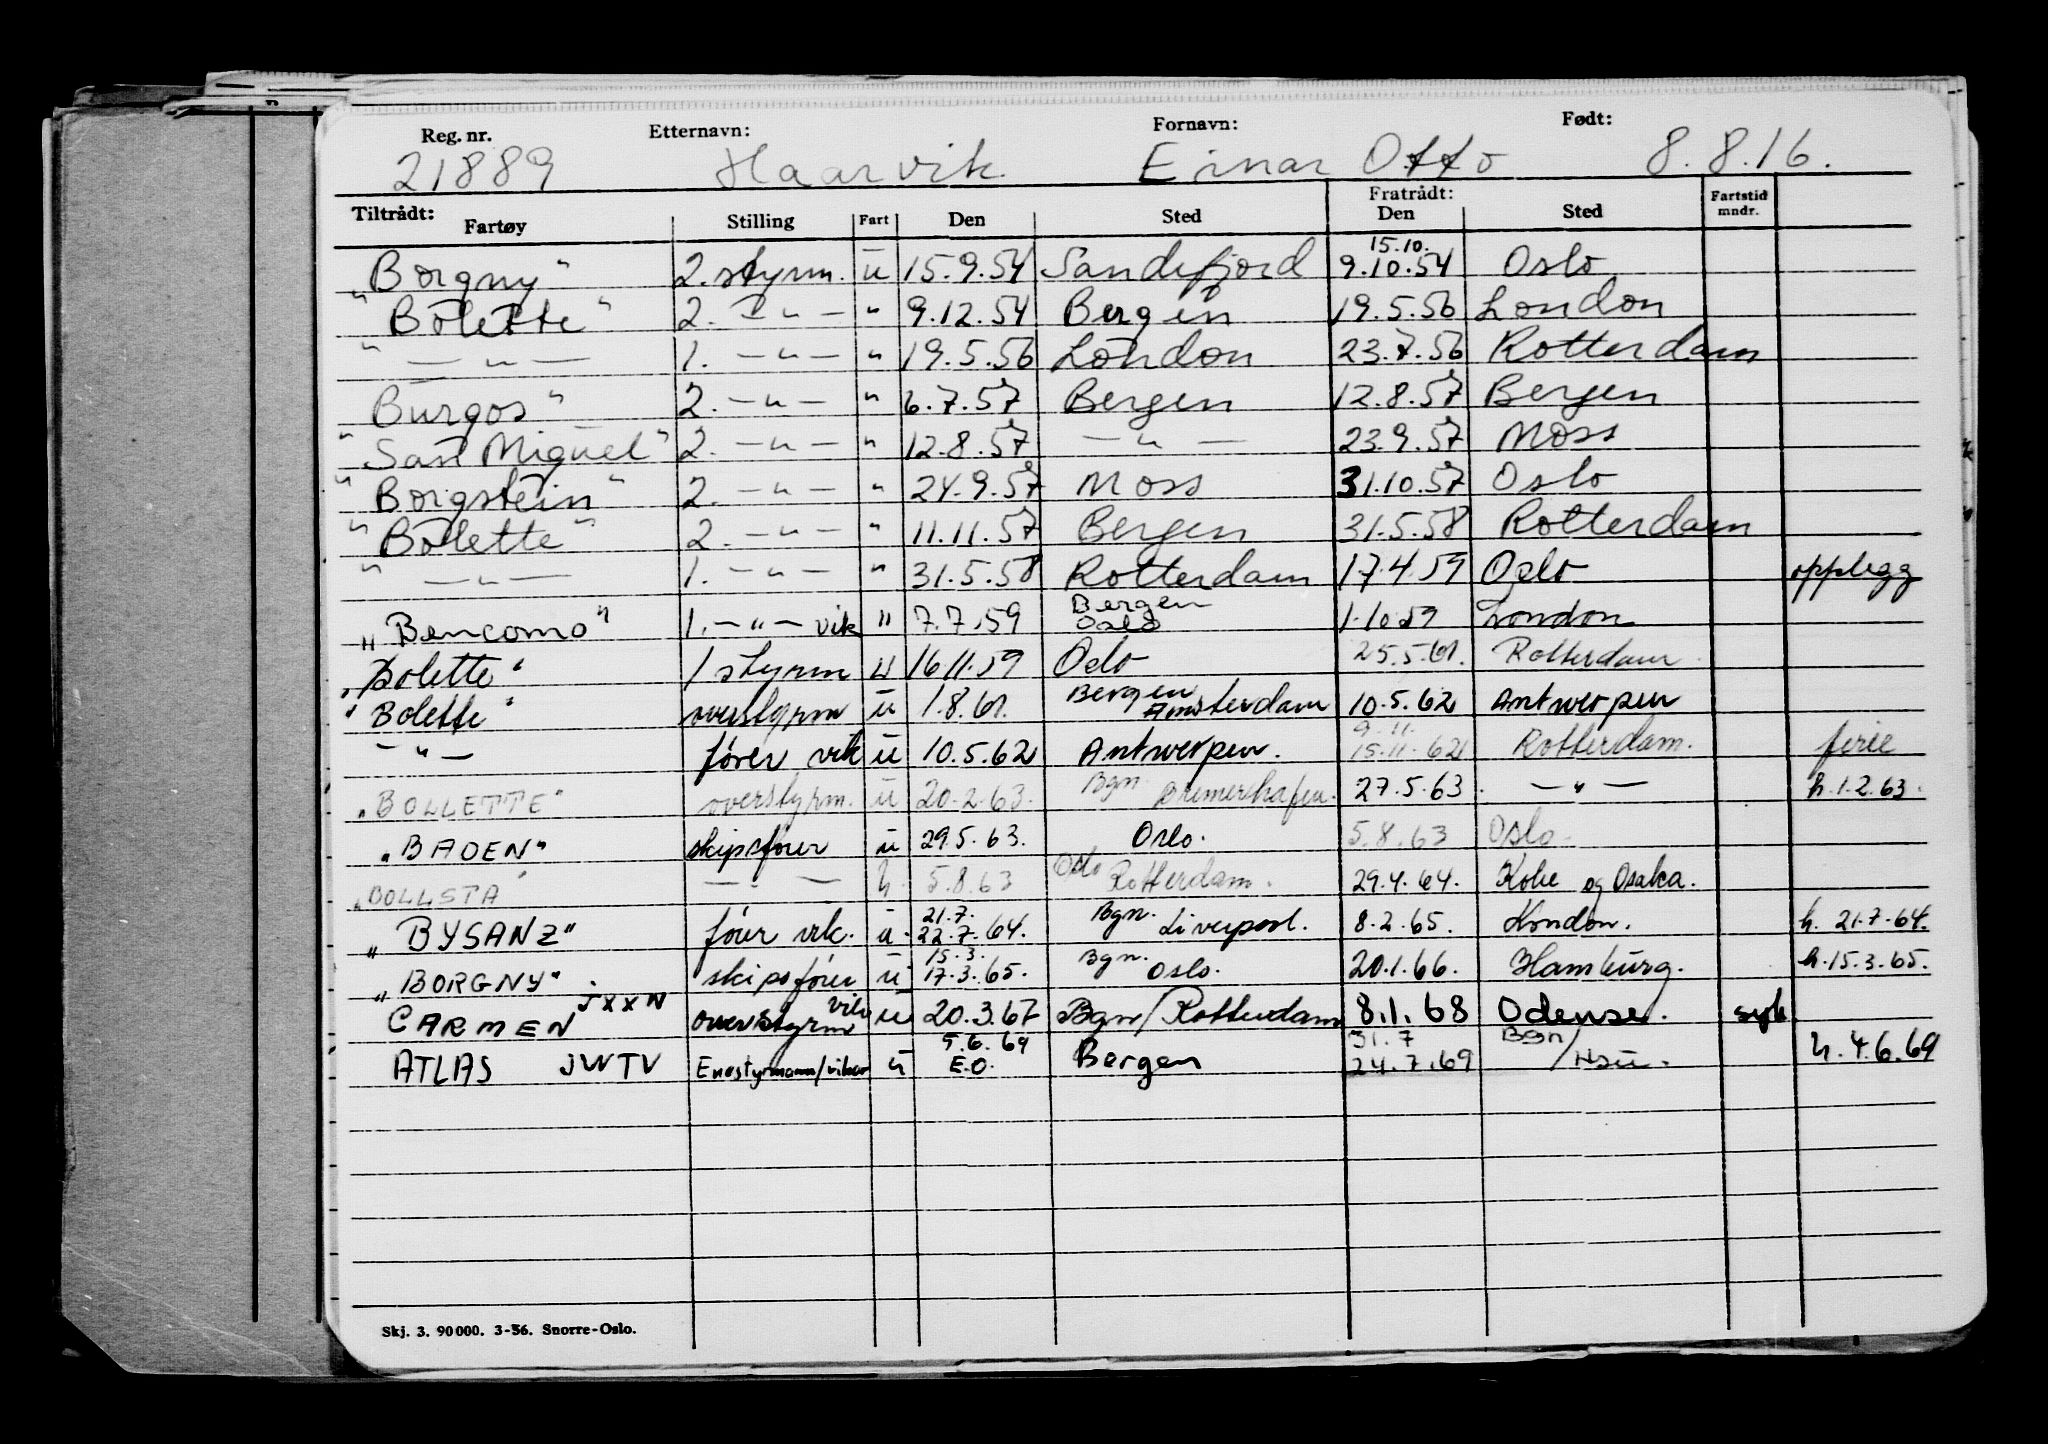 Reg. nr. Etternavn: Fornavn: Født:
21889 Haarvik Einar Otto 8.8.16.
Tiltrådt: Fratrådt:
Fartøy Stilling Fart Den Sted Den Sted Fartstid mndr.
"Borgny" 2. styrm. u 15.9.54 Sandefjord 15.10. 9.10.54 Oslo
"Bolette" 2. — " — " 9.12.54 Bergen 19.5.56 London
" — " — 1. — " — " 19.5.56 London 23.7.56 Rotterdam
"Burgos" 2. — " — " 6.7.57 Bergen 12.8.57 Bergen
"San Miguel" 2. — " — " 12.8.57 — " — 23.9.57 Moss
"Borgstein" 2. — " — " 24.9.57 Moss 31.10.57 Oslo
"Bolette" 2. — " — " 11.11.57 Bergen 31.5.58 Rotterdam
" — " — 1. — " — " 31.5.58 Rotterdam 17.4.59 Oslo opplegg
"Bencomo" 1. — " — vik " 7.7.59 Bergen Oslo 1.10.59 London
"Bolette" 1 styrm u 16.11.59 Oslo 25.5.61. Rotterdam
"Bolette" overstyrm u 1.8.61. Bergen Amsterdam 10.5.62 Antwerpen
— " — fører vik u 10.5.62 Antwerpen. 9.11. 15.11.62 Rotterdam. ferie
"BOLLETTE" overstyrm. u 20.2.63. Bgn. Bremerhafen. 27.5.63. — " — h.1.2.63.
"BADEN" skipsfører u 29.5.63. Oslo. 5.8.63 Oslo.
"BOLLSTA" — " — u. 5.8.63 Oslo Rotterdam. 29.4.64. Kobe og Osaka.
"BYSANZ" fører vik. u. 21.7. 22.7.64. Bgn. Liverpool. 8.2.65. London. h. 21.7.64.
"BORGNY" skipsfører u 15.3. 17.3.65. Bgn. Oslo. 20.1.66. Hamburg. h.15.3.65.
CARMEN JXXN overstyrm vik u 20.3.67 Bgn/Rotterdam 8.1.68 Odense. syk
ATLAS JWTV Enestyrmann/vikar u 5.6.69 E.O. Bergen 31.7 24.7.69 Bgn/ h.4.6.69
Skj. 3. 90 000. 3-56. Snorre-Oslo.